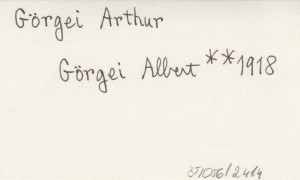 Görgei Arthur
Görgei Albert **1918
37/056/2414